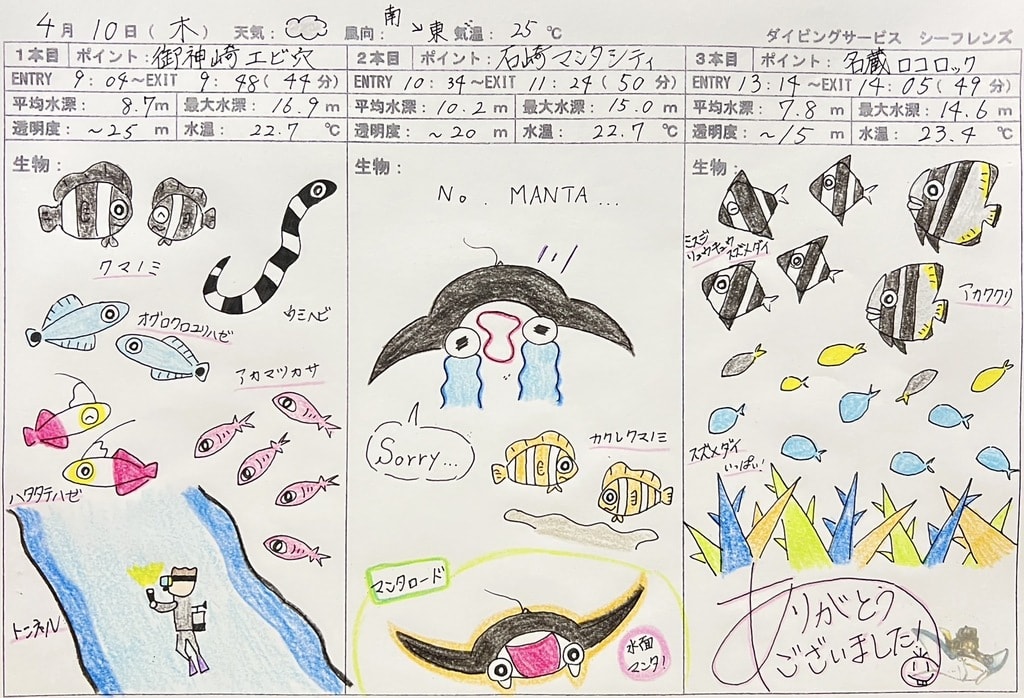 4月 10日(木) 天気: 風向: 南↘東 気温: 25℃
ダイビングサービス シーフレンズ
1本目 ポイント: 御神崎エビ穴
ENTRY 9:04〜EXIT 9:48(44分)
平均水深: 8.7m 最大水深: 16.9m
透明度: 〜25m 水温: 22.7℃
生物:
クマノミ
ウミヘビ
オグロクロユリハゼ
アカマツカサ
ハタタテハゼ
トンネル
2本目 ポイント: 石崎マンタシティ
ENTRY 10:34〜EXIT 11:24(50分)
平均水深: 10.2m 最大水深: 15.0m
透明度: 〜20m 水温: 22.7℃
生物:
No. MANTA...
Sorry...
カクレクマノミ
マンタロード
水面
マンタ!
3本目 ポイント: 名蔵ロコロック
ENTRY 13:14〜EXIT 14:05(49分)
平均水深: 7.8m 最大水深: 14.6m
透明度: 〜15m 水温: 23.4℃
生物:
ミスジ
リュウキュウ
スズメダイ
アカククリ
スズメダイ
いっぱい!
ありがとう
ございました!